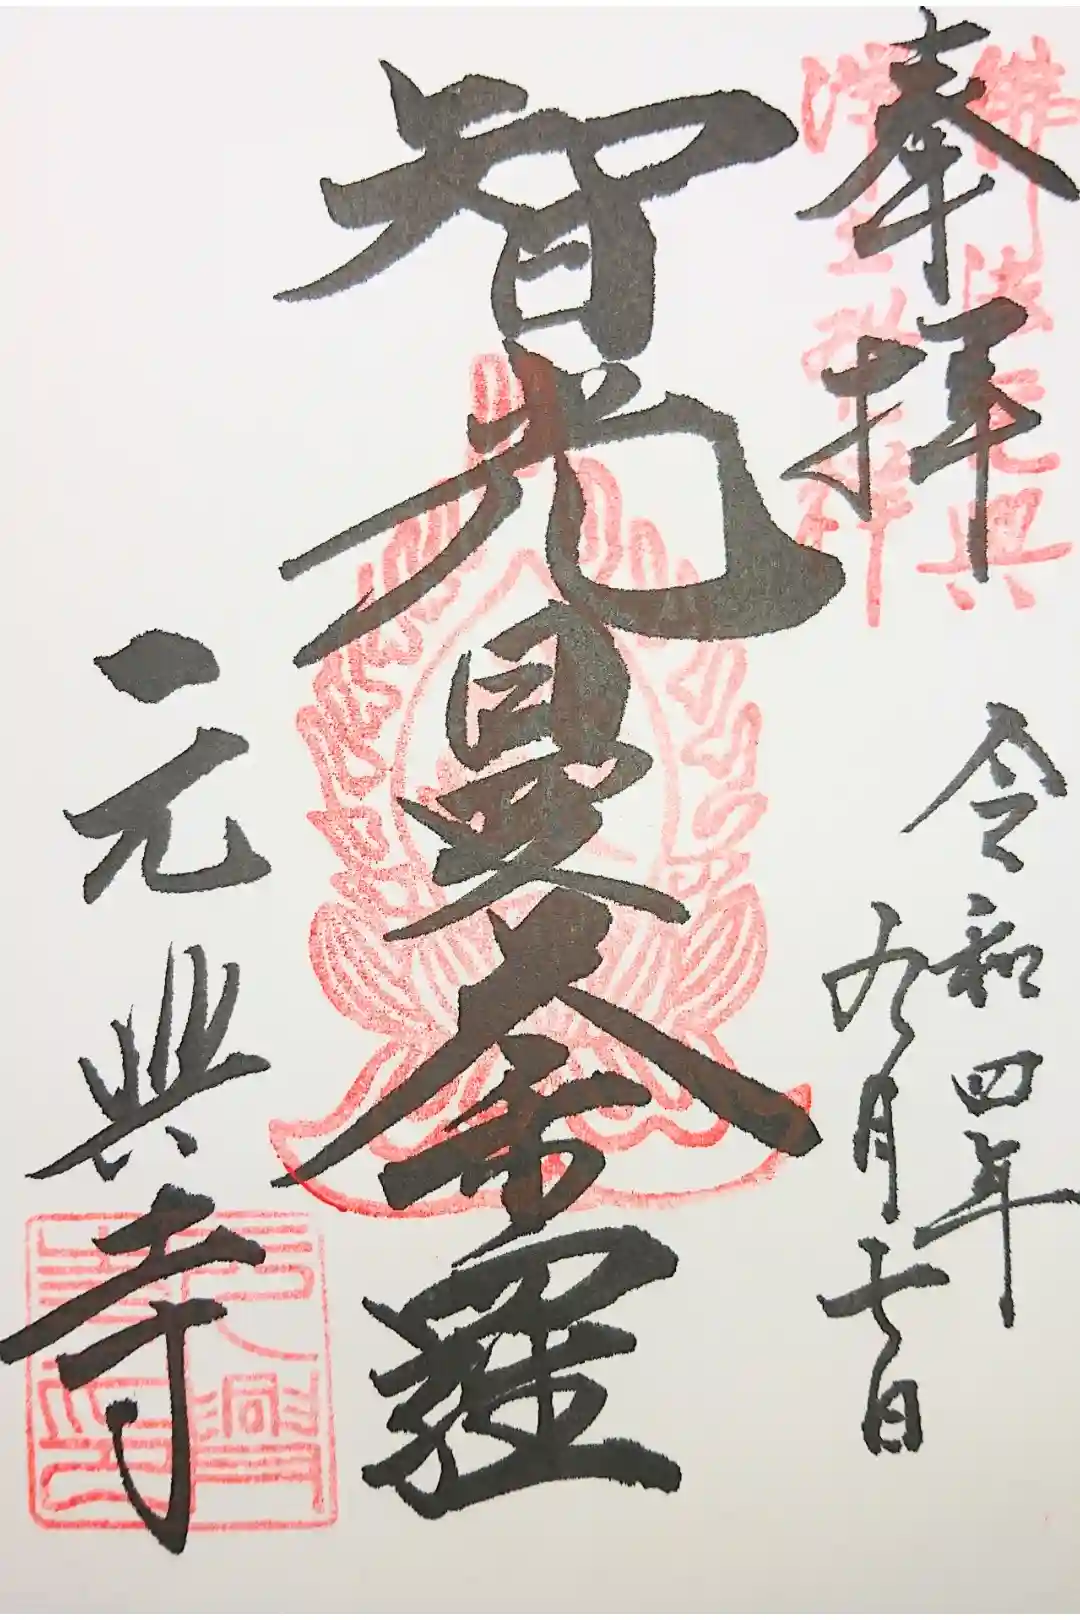 奉拝
令和四年
九月七日
智光曼荼羅
元興寺